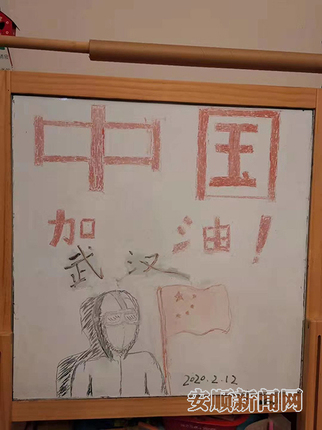 中国
加油！
武汉
2020.2.12
安顺新闻网